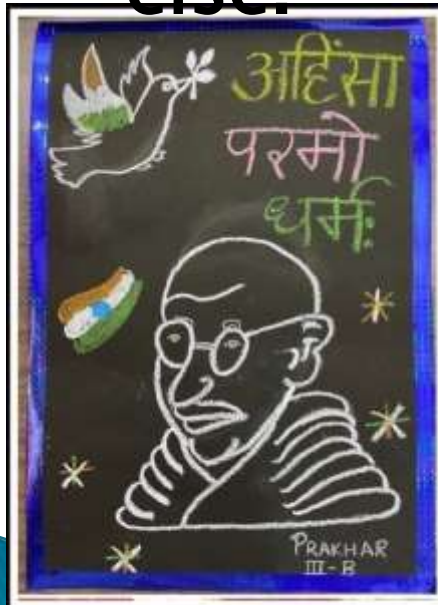 अहिंसा
परमो
धर्मः
PRAKHAR
III-B